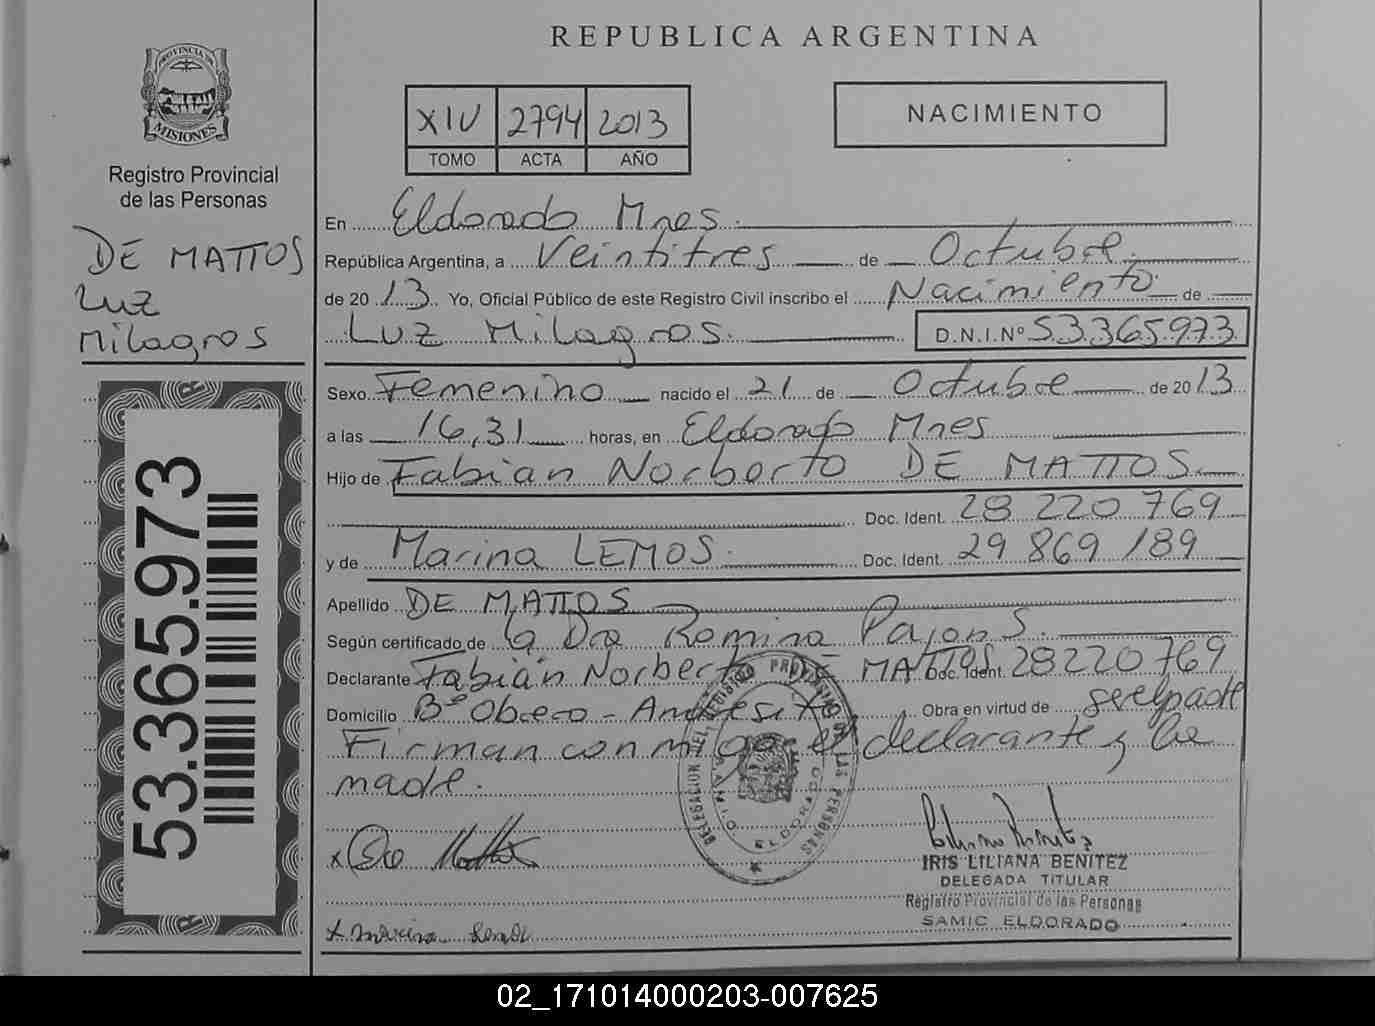 REPUBLICA ARGENTINA
PROVINCIA DE
MISIONES
Registro Provincial
de las Personas
DE MATTOS
Luz
Milagros
53.365.973
XIV 2794 2013
TOMO ACTA AÑO
NACIMIENTO
En Eldorado Mnes.
República Argentina, a Veintitres de Octubre
de 20 13. Yo, Oficial Público de este Registro Civil inscribo el Nacimiento de
Luz Milagros. D.N.I.Nº 53.365.973
Sexo Femenino nacido el 21 de Octubre de 20 13
a las 16,31 horas, en Eldorado Mnes
Hijo de Fabian Norberto DE MATTOS
Doc. Ident. 28 220 769
y de Marina LEMOS. Doc. Ident. 29 869 189
Apellido DE MATTOS
Según certificado de la Dra Romina
Declarante Fabián Norberto DE MATTOS Doc. Ident. 28220769
Domicilio Bº Obrero - Andresito Obra en virtud de ser el padre
Firman conmigo el declarante y la
madre.
DELEGACION EL DORADO PROVINCIAL DE LAS PERSONAS
ELDORADO
IRIS LILIANA BENITEZ
DELEGADA TITULAR
Registro Provincial de las Personas
SAMIC ELDORADO
x Marina
02_171014000203-007625